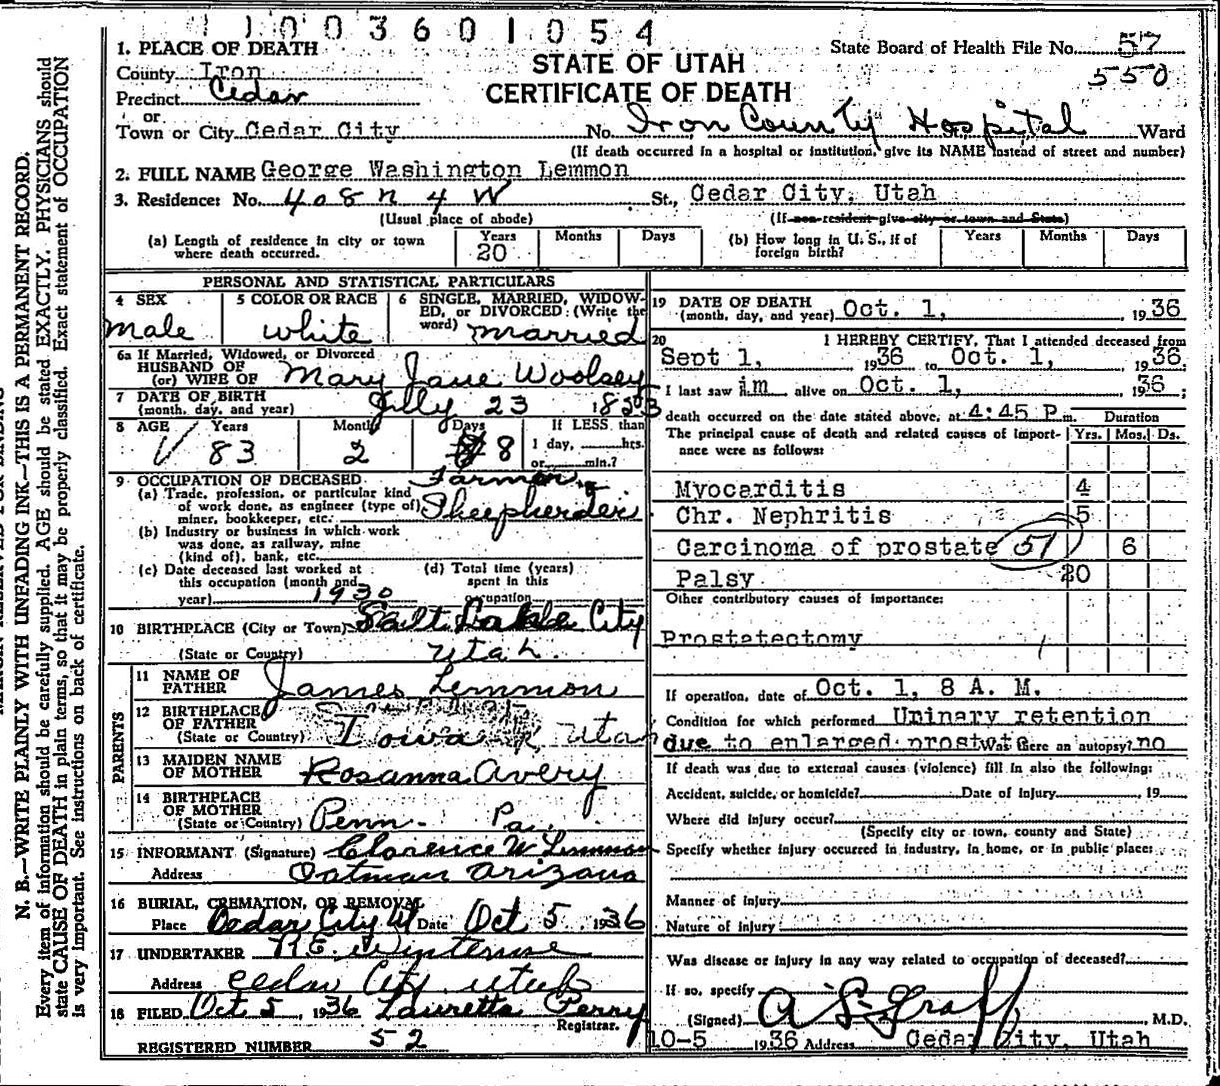 1 1 0 0 3 6 0 1 0 5 4
1. PLACE OF DEATH
County Iron
Precinct Cedar
or
Town or City Cedar City
STATE OF UTAH
CERTIFICATE OF DEATH
State Board of Health File No. 57
550
No. Iron County Hospital Ward
(If death occurred in a hospital or institution, give its NAME instead of street and number)
2. FULL NAME George Washington Lemmon
3. Residence: No. 408 N 4 W St., Cedar City, Utah
(Usual place of abode) (If non-resident give city or town and State)
(a) Length of residence in city or town where death occurred. Years 20 Months Days
(b) How long in U. S., if of foreign birth? Years Months Days
PERSONAL AND STATISTICAL PARTICULARS
4 SEX male
5 COLOR OR RACE white
6 SINGLE, MARRIED, WIDOWED, OR DIVORCED (Write the word) married
6a If Married, Widowed, or Divorced
HUSBAND OF
(or) WIFE OF Mary Jane Woolsey
7 DATE OF BIRTH
(month, day, and year) July 23 1853
8 AGE Years Months Days If LESS than
83 2 8 1 day, hrs.
or min.?
9 OCCUPATION OF DECEASED Farmer
(a) Trade, profession, or particular kind
of work done, as engineer (type of) Sheepherder
miner, bookkeeper, etc.
(b) Industry or business in which work
was done, as railway, mine
(kind of), bank, etc.
(c) Date deceased last worked at
this occupation (month and
year) 1930
(d) Total time (years)
spent in this
occupation
10 BIRTHPLACE (City or Town) Salt Lake City
(State or Country) Utah.
PARENTS
11 NAME OF
FATHER James Lemmon
12 BIRTHPLACE
OF FATHER
(State or Country) Iowa Utah
13 MAIDEN NAME
OF MOTHER Rosanna Avery
14 BIRTHPLACE
OF MOTHER
(State or Country) Penn. Pa.
15 INFORMANT (Signature) Clarence W Lemmon
Address Oatman Arizona
16 BURIAL, CREMATION, OR REMOVAL
Place Cedar City Ut Date Oct 5 1936
17 UNDERTAKER
Address Cedar City Utah
18 FILED Oct 5, 1936 Lauretta Perry
Registrar.
REGISTERED NUMBER 52
19 DATE OF DEATH
(month, day, and year) Oct. 1, 1936
20 I HEREBY CERTIFY, That I attended deceased from
Sept 1, 1936 to Oct. 1, 1936
I last saw im alive on Oct. 1, 1936;
death occurred on the date stated above, at 4:45 P. m. Duration
The principal cause of death and related causes of importance were as follows: Yrs. Mos. Ds.
Myocarditis 4
Chr. Nephritis 5
Carcinoma of prostate 51 6
Palsy 20
Other contributory causes of importance:
Prostatectomy
If operation, date of Oct. 1, 8 A. M.
Condition for which performed Urinary retention
due to enlarged prostate Was there an autopsy? no
If death was due to external causes (violence) fill in also the following:
Accident, suicide, or homicide? Date of injury 19
Where did injury occur?
(Specify city or town, county and State)
Specify whether injury occurred in industry, in home, or in public place:
Manner of injury
Nature of injury
Was disease or injury in any way related to occupation of deceased?
If so, specify
(Signed) A L Graff, M.D.
10-5 1936 Address Cedar City, Utah
N. B.—WRITE PLAINLY WITH UNFADING INK—THIS IS A PERMANENT RECORD.
Every item of information should be carefully supplied. AGE should be stated EXACTLY. PHYSICIANS should
state CAUSE OF DEATH in plain terms, so that it may be properly classified. Exact statement of OCCUPATION
is very important. See instructions on back of certificate.